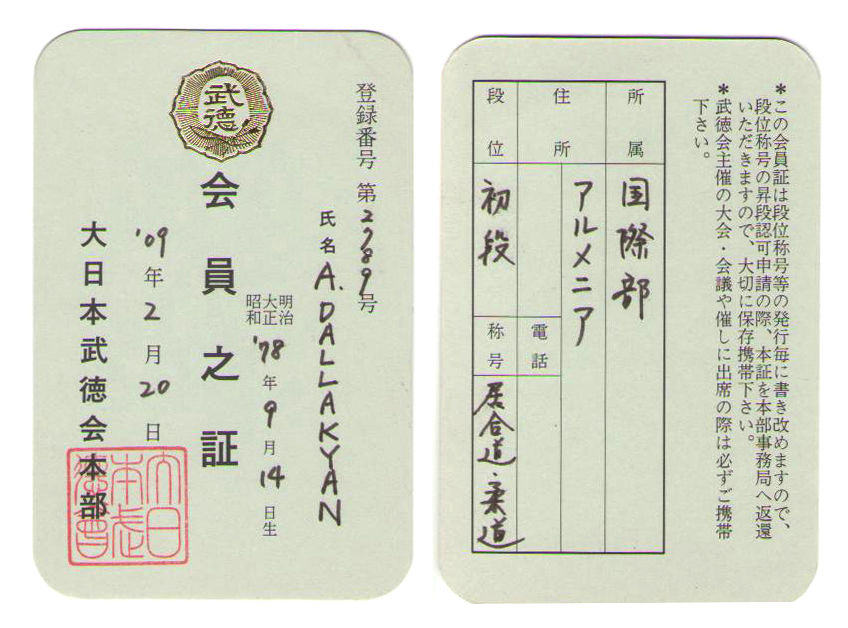 登録番号 第2789号
氏名 A. DALLAKYAN
明治
大正
昭和
'78年9月14日生
武德
会員之証
'09年2月20日
大日本武徳会本部
大日
本武
德會
＊この会員証は段位称号等の発行毎に書き改めますので、
段位称号の昇段認可申請の際、本証を本部事務局へ返還
いただきますので、大切に保存携帯下さい。
＊武徳会主催の大会・会議や催しに出席の際は必ずご携帯
下さい。
所属 国際部
住所 アルメニア
電話
段位 初段
称号 居合道・柔道